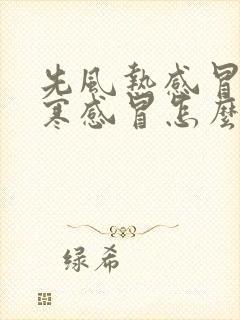 先風熱感冒
寒感冒怎麼
绿希